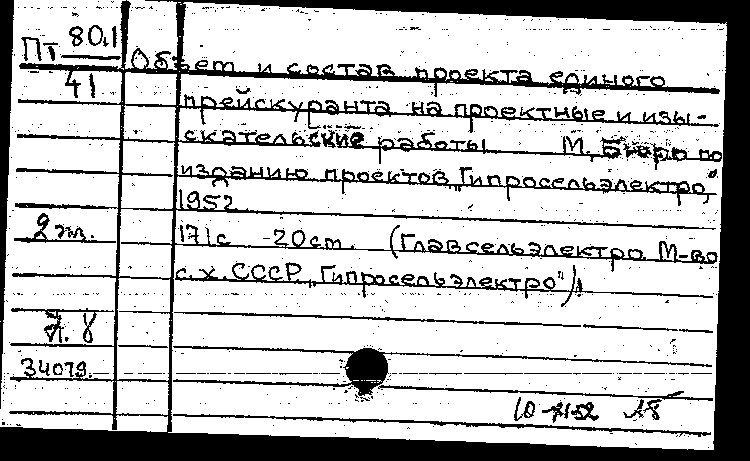 Пт 80.1
41
Объем и состав проекта единого
прейскуранта на проектные и изы-
скательские работы М, Бюро по
изданию проектов „Гипросельэлектро,"
1952
2 эк.
171с 20ст. (Главсельэлектро М-во
с.х. СССР „Гипросельэлектро")
34079.